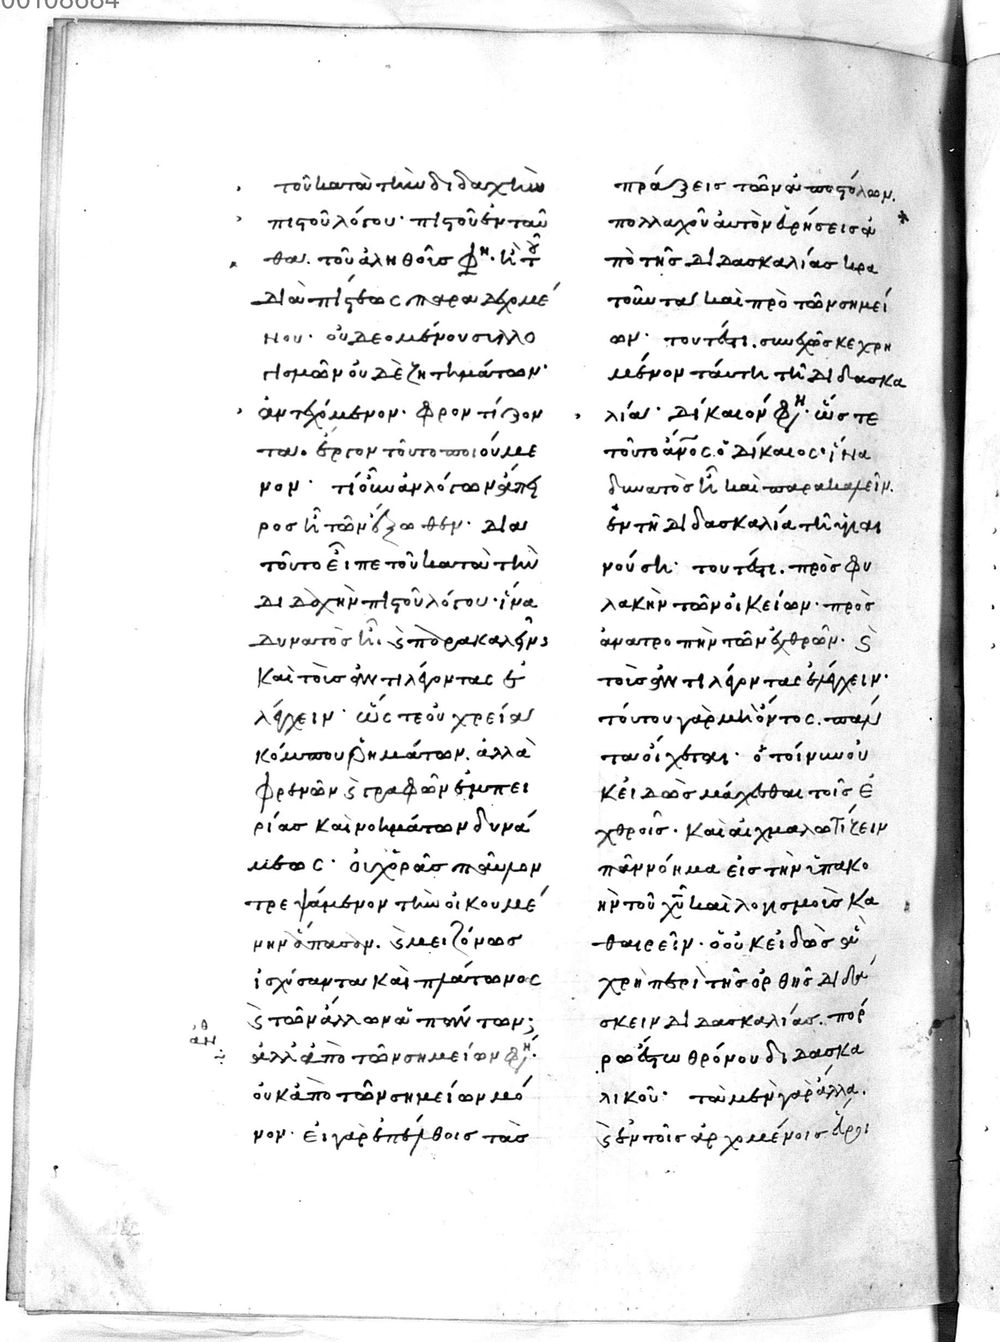 00108684
τοῦ κατὰ τὴν διδαχὴν
πιστοῦ λόγου· πιστοῦ ἐνταῦ
θα. τοῦ ἀληθοῦς φη·
διὰ πίστεως παραδεχομέ
νου· οὐ δεομένου συλλο
γισμῶν οὐδὲ ζητημάτων·
ἀντεχόμενον· φροντίζον
τα. ἔργον τοῦτο ποιούμε
νον· τί οὖν ἂν λόγων ἄπει
ρος ἦ τῶν ἔξωθεν· διὰ
τοῦτο εἶπε τοῦ κατὰ τὴν
διδαχὴν πιστοῦ λόγου· ἵνα
δυνατὸς ἦ. ϗ παρακαλεῖν·
καὶ τοὺς ἀντιλέγοντας ἐ
λέγχειν· ὥστε οὐ χρεία
κόμπου ῥημάτων. ἀλλὰ
φρενῶν ϗ γραφῶν ἐμπει
ρίας καὶ νοημάτων δυνά
μεως· οὐχ ὁρᾶς παῦλον
τρεψάμενον τὴν οἰκουμέ
νην ἅπασαν. ϗ μειζόνως
ἰσχύσαντα καὶ πλάτωνος
ϗ τῶν ἄλλων ἁπάντων;
ἀλλ' ἀπὸ τῶν σημείων φη·
οὐκ ἀπὸ τῶν σημείων μό
νον· εἰ γὰρ ἐπέλθοις τὰς
πράξεις τῶν ἀποστόλων.
πολλαχοῦ αὐτὸν εὑρήσεις ἀ
πὸ τῆς διδασκαλίας κρα
τοῦντα καὶ πρὸ τῶν σημεί
ων· τουτέστι. συνεχῶς κεχρη
μένον ταύτη τῆ διδασκα
λία· δίκαιόν φη· ὥστε
τοῦτο ἀνος ὁ δίκαιος· ἵνα
δυνατὸς ἦ καὶ παρακαλεῖν.
ἐν τῆ διδασκαλία τῆ ὑγιαι
νούση· τουτέστι. πρὸς φυ
λακὴν τῶν οἰκείων· πρὸς
ἀνατροπὴν τῶν ἐχθρῶν· ϗ
τοὺς ἀντιλέγοντας ἐλέγχειν·
τούτου γὰρ μὴ ὄντος. πάν
τα οἴχεται· ὁ τοίνυν οὐ
κ εἰδὼς μάχεσθαι τοῖς ἐ
χθροῖς· καὶ αἰχμαλωτίζειν
πᾶν νόημα εἰς τὴν ὑπακο
ὴν τοῦ χῦ καὶ λογισμοὺς κα
θαιρεῖν· ὁ οὐκ εἰδὼς ἃ
χρὴ περὶ τῆς ὀρθῆς διδα
σκειν διδασκαλίας. πόρ
ρω ἔστω θρόνου διδασκα
λικοῦ· τὰ μὲν γὰρ ἄλλα.
ϗ ἐν τοῖς ἀρχομένοις εὕροι